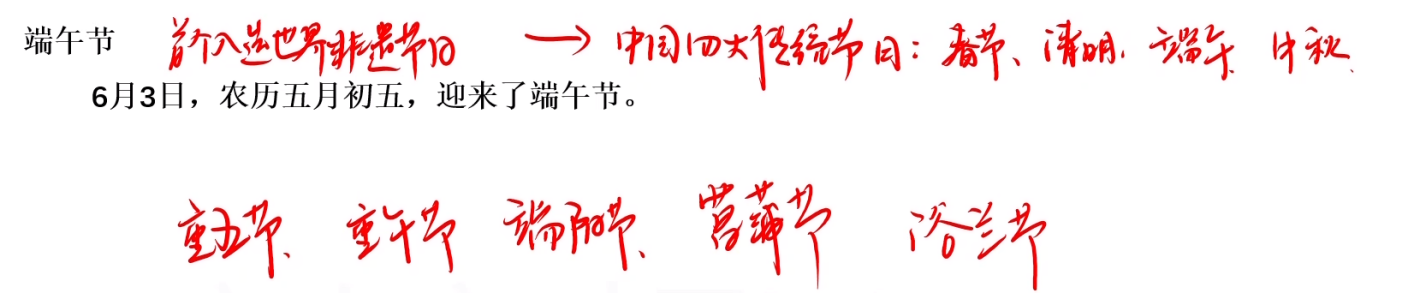 端午节 首个入选世界非遗节日 → 中国四大传统节日：春节、清明、端午、中秋
6月3日，农历五月初五，迎来了端午节。
重五节、重午节 端阳节、菖蒲节 浴兰节